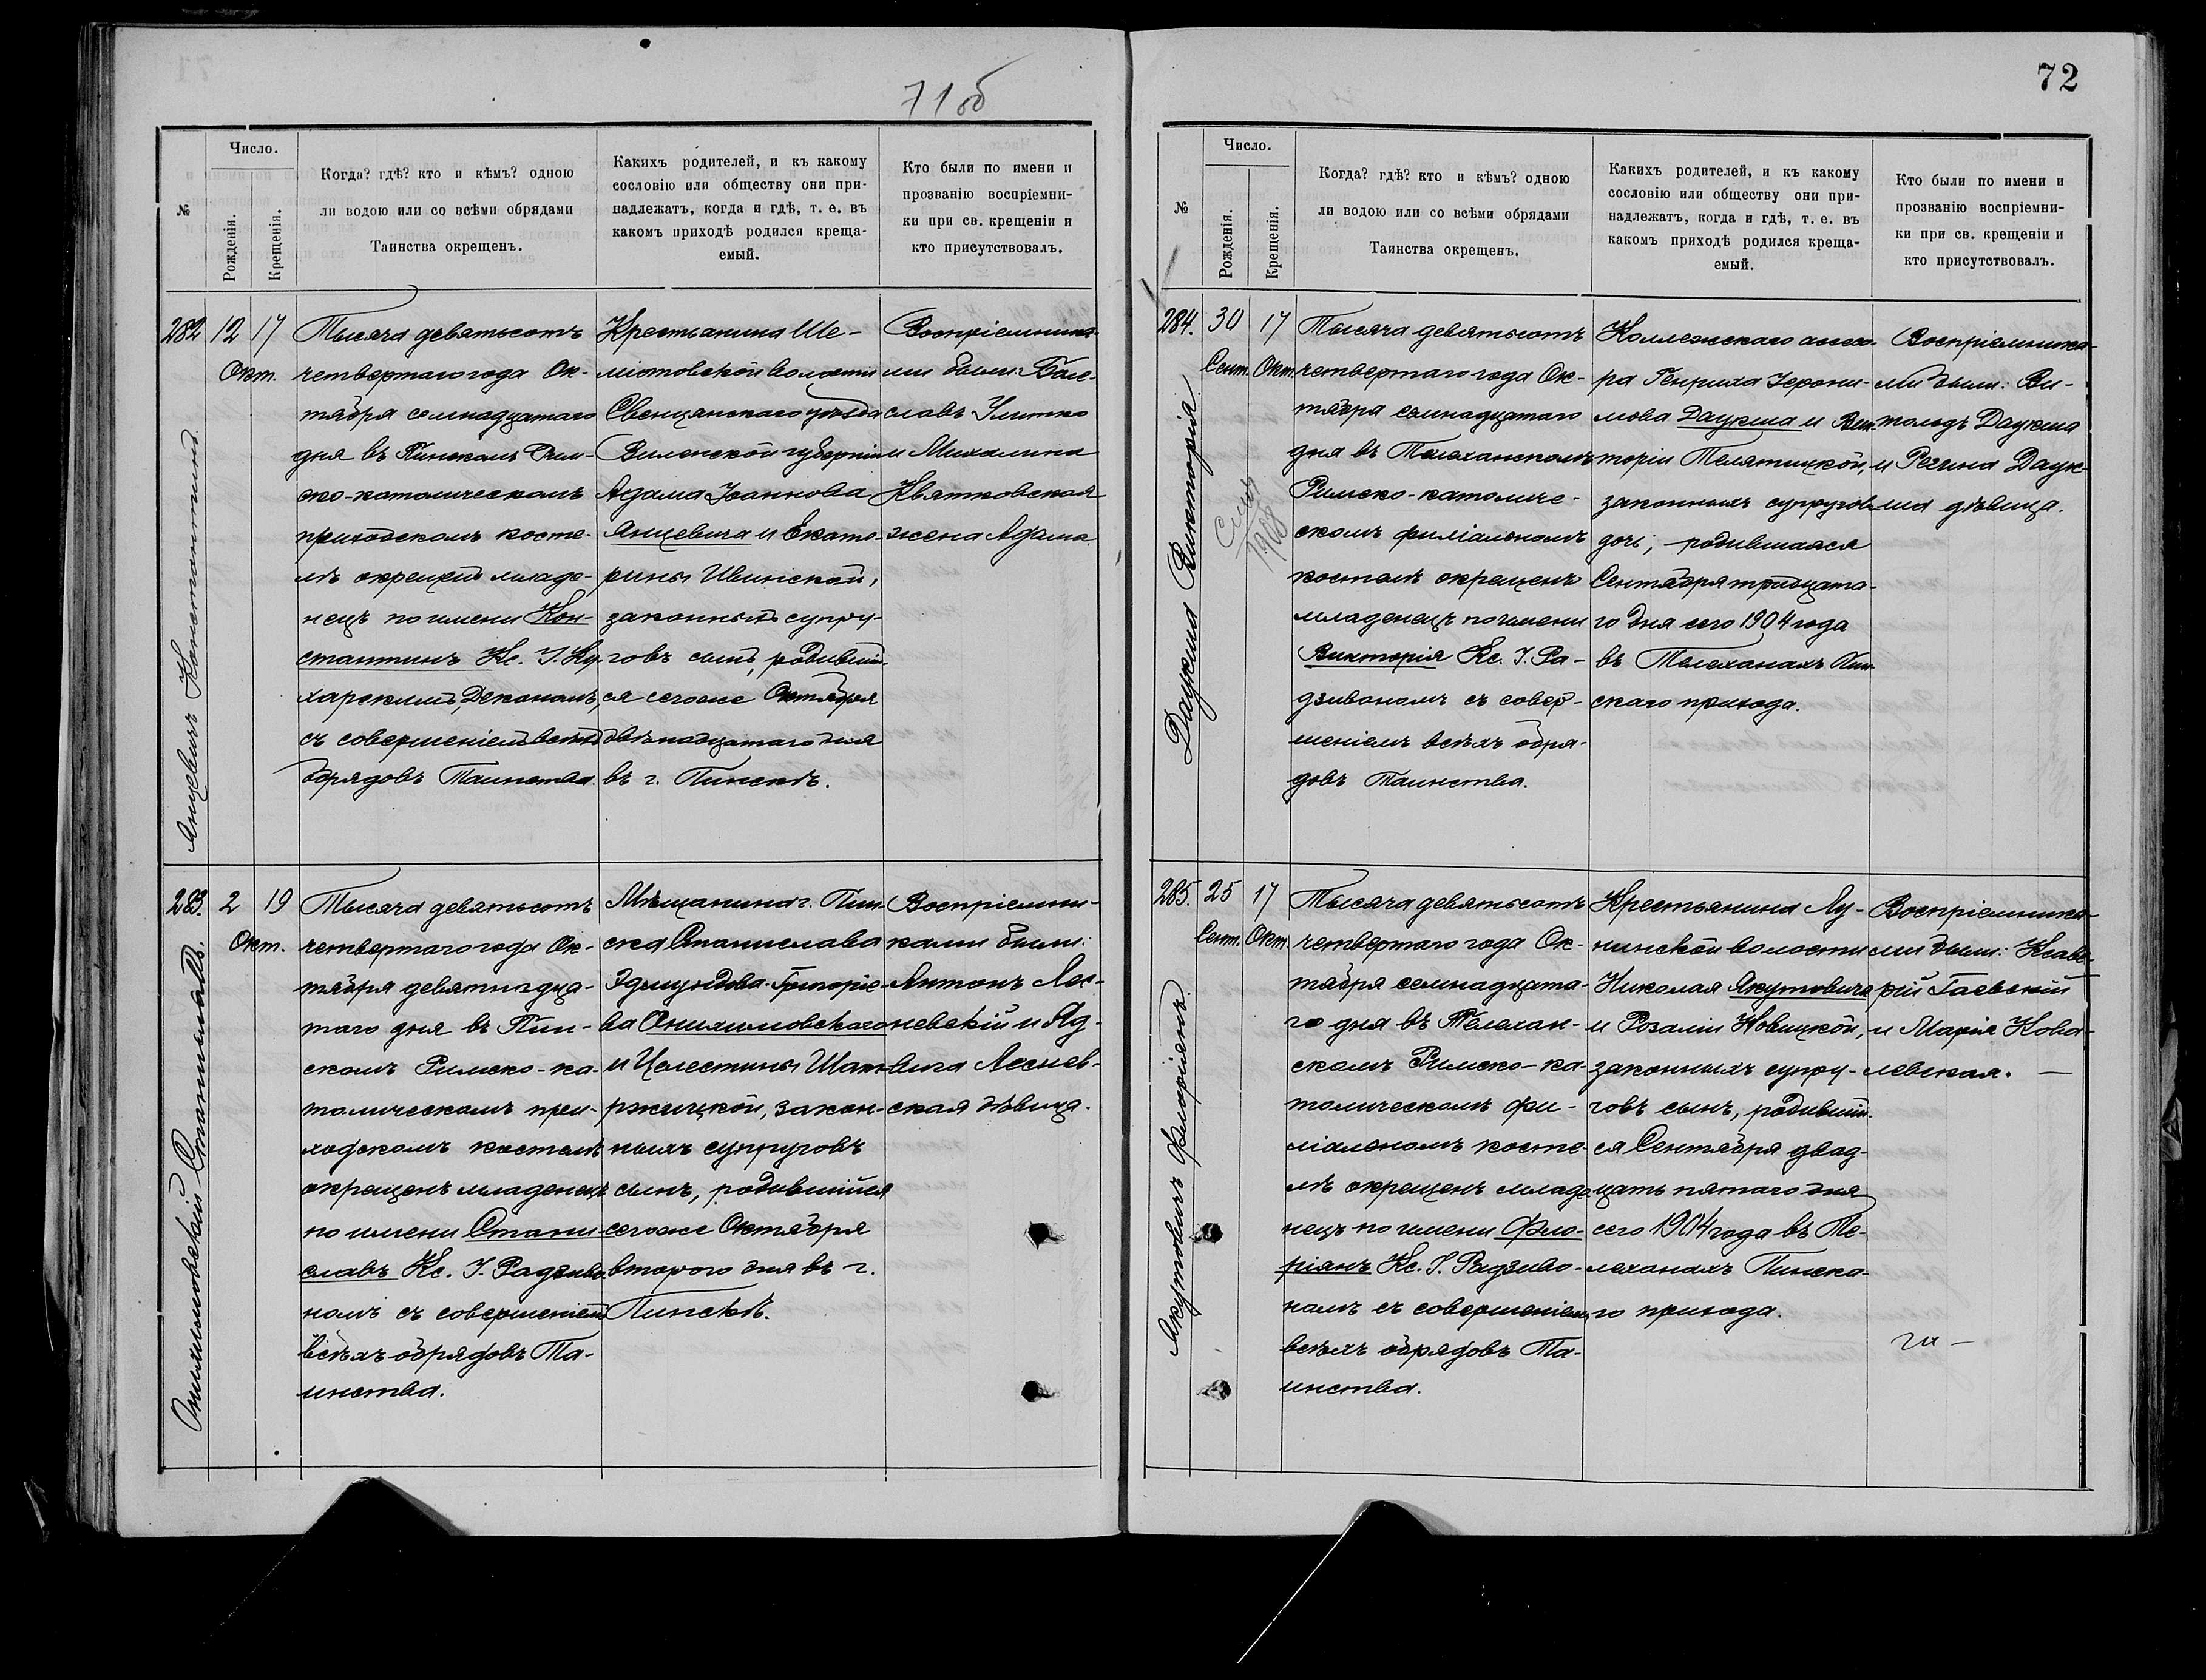 71об
№
Число.
Рожденія.
Крещенія.
Когда? гдѣ? кто и кѣмъ? одною
ли водою или со всѣми обрядами
Таинства окрещенъ.
Какихъ родителей, и къ какому
сословію или обществу они при-
надлежатъ, когда и гдѣ, т. е. въ
какомъ приходѣ родился креща-
емый.
Кто были по имени и
прозванію воспріемни-
ки при св. крещеніи и
кто присутствовалъ.
282
Янцевичъ Константинъ
12
Окт.
17
Тысяча девятьсотъ
четвертаго года Ок-
тября семнадцатаго
дня въ Пинскомъ Рим-
ско-католическомъ
приходскомъ косте-
лѣ окрещенъ младе-
нецъ по имени Кон-
стантинъ Кс. І. Ку-
харскимъ, Деканомъ,
съ совершеніемъ всѣхъ
обрядовъ Таинства.
Крестьянина Ше-
метовской волости
Свенцянскаго уѣзда
Виленской губерніи
Адама Іоаннова
Янцевича и Екате-
рины Ивинской,
законныхъ супру-
говъ сынъ, родивші-
ся сегоже Октября
двѣнадцатаго дня
въ г. Пинскѣ.
Воспріемника-
ми были: Боле-
славъ Улитко
и Михалина
Квятковская
жена Адама.
283.
Онихимовскій Станиславъ.
2
Окт.
19
Тысяча девятьсотъ
четвертаго года Ок-
тября девятнадца-
таго дня въ Пин-
скомъ Римско-ка-
толическомъ при-
ходскомъ костелѣ
окрещенъ младенецъ
по имени Стани-
славъ Кс. І. Радзиво-
номъ съ совершеніемъ
всѣхъ обрядовъ Та-
инства.
Мѣщанина г. Пин-
ска Станислава
Эдмундова-Григорье-
ва Онихимовскаго
и Целестины Шат-
ржицкой, закон-
ныхъ супруговъ
сынъ, родившийся
сегоже Октября
второго дня въ г.
Пинскѣ.
Воспріемни-
ками были:
Антонъ Лес-
невскій и Яд-
вига Леснев-
ская дѣвица.
72
№
Число.
Рожденія.
Крещенія.
Когда? гдѣ? кто и кѣмъ? одною
ли водою или со всѣми обрядами
Таинства окрещенъ.
Какихъ родителей, и къ какому
сословію или обществу они при-
надлежатъ, когда и гдѣ, т. е. въ
какомъ приходѣ родился креща-
емый.
Кто были по имени и
прозванію воспріемни-
ки при св. крещеніи и
кто присутствовалъ.
284.
Даукша Викторія
30
Сент.
17
Окт.
1908
Тысяча девятьсотъ
четвертаго года Ок-
тября семнадцатаго
дня въ Телеханскомъ
Римско-католиче-
скомъ филіальномъ
костелѣ окрещенъ
младенецъ по имени
Викторія Кс. І. Ра-
дзивономъ съ совер-
шеніемъ всѣхъ обря-
довъ Таинства.
Коллежскаго ассесо-
ра Генриха Іерони-
мова Даукша и Вик-
торіи Телятицкой,
законныхъ супруговъ
дочь, родившаяся
Сентября тридцата-
го дня сего 1904 года
въ Телеханахъ Пин-
скаго прихода.
Воспріемника-
ми были: Ви-
тольдъ Даукша
и Регина Даук-
ша дѣвица.
285.
Якутовичъ Флоріянъ.
25
Сент.
17
Окт.
Тысяча девятьсотъ
четвертаго года Ок-
тября семнадцата-
го дня въ Телехан-
скомъ Римско-ка-
толическомъ фи-
ліальномъ косте-
лѣ окрещенъ младе-
нецъ по имени Фло-
ріянъ Кс. І. Радзиво-
номъ съ совершеніемъ
всѣхъ обрядовъ Та-
инства.
Крестьянина Лу-
нинской волости
Николая Якутовича
и Розаліи Новицкой,
законныхъ супру-
говъ сынъ, родивші-
ся Сентября двад-
цать пятаго дня
сего 1904 года въ Те-
леханахъ Пинска-
го прихода.
Воспріемника-
ми были: Ксаве-
рій Гаевскій
и Марія Кова-
левская.